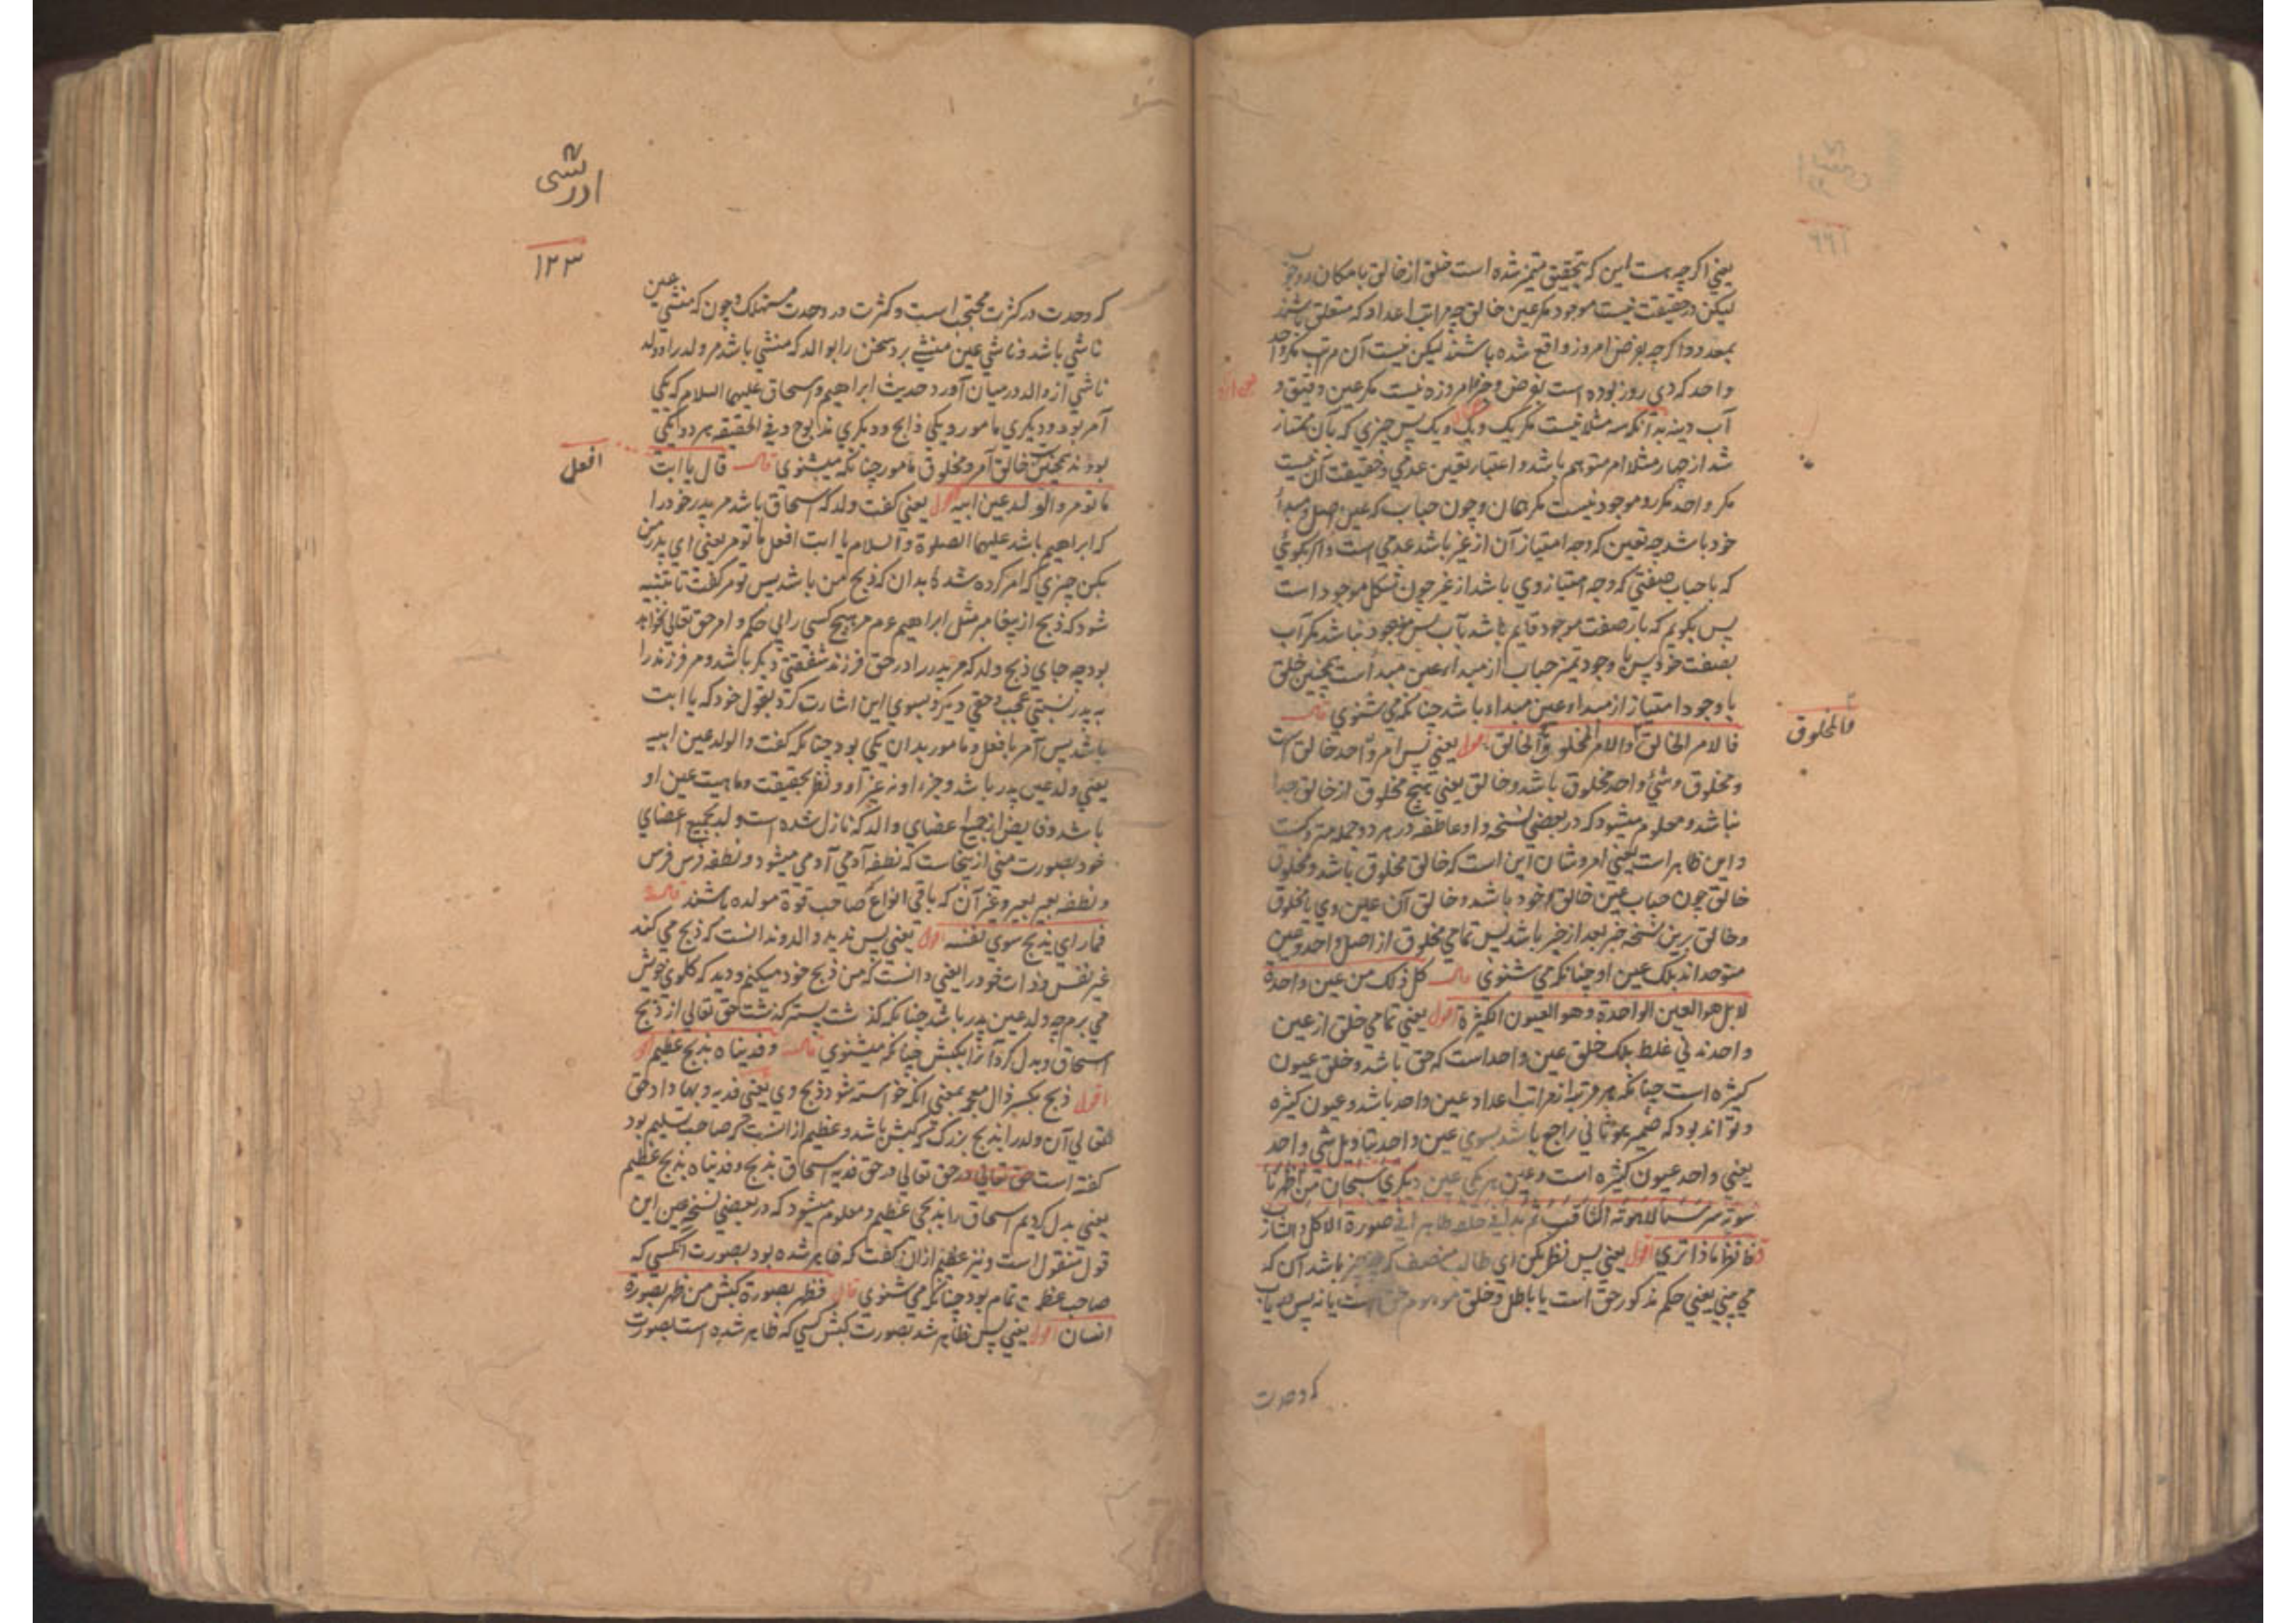 یعنی اکرچه هست این که بتحقیق متمیز شده است خلق از خالق بامکان و وجوب
لیکن در حقیقت نیست موجود مکر عین خالق چه مراتب اعداد که متعلق باشند
بمعدود اکرچه بعرض امروز واقع شده باشند لیکن نیست آن مرتب مکر واحد
واحد که دی روز بوده است بعرض و جزء امروزه نیست مکر عین
آب دینه بدآنکه سه مثلا نیست مکر یک ویک ویک پس چیزی که بآن ممتاز
شد از چهار مثلا امر متوهم باشد و اعتبار تعین عدمی و حقیقت آن نیست
مکر واحد مکرر و موجود نیست مکر همان و چون حباب که عین اصل و مبدأ
خود باشد چه تعین که وجه امتیاز آن از غیر باشد عدمی است و اکر بکوئی
که با حباب صفتی که وجه امتیاز وی باشد از غیر چون تشکل موجود است
پس بکویم که بار صفت موجود قایم باشد بآب پس موجود نباشد مکر آب
بصفت خود پس با وجود تمیز حباب از مبدا عین مبدا است همچنین خلق
با وجود امتیاز از مبدا و عین مبدا و باشد چنانکه می شنوی قال
فالامر الخالق المخلوق والامر المخلوق الخالق اقول یعنی پس امر واحد خالق است
فالمخلوق
و مخلوق وشئ واحد مخلوق باشد و خالق یعنی هیچ مخلوق از خالق جدا
نباشد و معلوم میشود که در بعضی نسخه واو عاطفه در هر دو جمله متروکست
و این ظاهر است یعنی امر و شان این است که خالق مخلوق باشد و مخلوق
خالق چون حباب عین خالق خود باشد و خالق آن عین وی یا مخلوق
و خالق برین نسخه خبر بعد از خبر باشد پس تمامی مخلوق از اصل واحد و عین
متوحد اند بلکه عین او چنانکه می شنوی قال کل ذلک من عین واحدة
لا بل هو العین الواحدة وهو العیون الکثیرة اقول یعنی تمامی خلق از عین
واحدند نی غلط بلکه خلق عین واحد است که حق باشد و خلق عیون
کثیره است چنانکه هر مرتبه از مراتب اعداد عین واحد باشد و عیون کثیره
و تواند بود که ضمیر هو ثانی راجع باشد بسوی عین واحد بتاویل شی واحد
یعنی واحد عیون کثیره است و عین هر یکی عین دیکری سبحان من اظهر ناسوته
سر سنا لاهوته الثاقب ثم بدا فی خلقه ظاهرا فی صورة الاکل والشارب
فانظر ماذا تری اقول یعنی پس نظر بکن ای طالب منصف که چه چیز باشد آن که
می بینی یعنی حکم مذکور حق است یا باطل و خلق موهوم حق است یا نه پس
که وحدت
ادریسی
۱۲۳
که وحدت در کثرت محتجب است و کثرت در وحدت مستهلک و چون که منشی عین
ناشی باشد و ناشی عین منشی برد سخن را بوالد که منشی باشد مر ولد را و ولد
ناشی از والد در میان آورد حدیث ابراهیم و اسحاق علیهما السلام که یکی
آمر بود و دیکری مامور و یکی ذابح و دیکری مذبوح و فی الحقیقه هر دو یکی
بودند همچنین خالق آمر و مخلوق مامور چنانکه میشنوی قال قال یا ابت
افعل
ما تومر والولد عین ابیه اقول یعنی کفت ولد که اسحاق باشد مر پدر خود را
که ابراهیم باشد علیهما الصلوة والسلام یا ابت افعل ما تومر یعنی ای پدر من
بکن چیزی که امر کرده شده بدان که ذبح من باشد پس تومر کفت تا متنبه
شود که ذبح از پیغامبر مثل ابراهیم ع م مر هیچ کسی رابی حکم و امر حق تعالی نخواهد
بود چه جای ذبح ولد که مر پدر را در حق فرزند شفقتی دیکر باشد و مر فرزند را
به پدر نسبتی عجب و حقی دیکر و بسوی این اشارت کرد بقول خود که یا ابت
باشد پس آمر بافعل و مامور بدان یکی بود چنانکه کفت والولد عین ابیه
یعنی ولد عین پدر باشد و جزء او نه غیر او و نظر بحقیقت و ماهیت عین او
باشد و فایض از جمیع اعضای والد که نازل شده است ولد بجمیع اعضای
خود بصورت منی ازینجاست که نطفه آدمی آدمی میشود و نطفه فرس فرس
و نطفه بعیر بعیر و غیر آن که باقی انواع صاحب قوة مولده باشند قال
فما رای یذبح سوی نفسه اقول یعنی پس ندید والد و ندانست که ذبح می کند
غیر نفس و ذات خود را یعنی دانست که من ذبح خود میکنم و دید که کلوی خویش
می برم چه ولد عین پدر باشد چنانکه کذشت پستر کذشت حق تعالی از ذبح
اسحاق و بدل کرد آنرا بکبش چنانکه میشنوی قال وفدیناه بذبح عظیم
اقول ذبح بکسر ذال معجمه بمعنی آنکه خواسته شود ذبح وی یعنی فدیه و بها داد حق
تعالی آن ولد را بذبح بزرک که کبش باشد و عظیم از آنست که صاحب تسلیم بود
کفته است حق تعالی در حق تعالی در حق فدیه اسحاق بذبح وفدیناه بذبح عظیم
یعنی بدل کردیم اسحاق را بذبحی عظیم و معلوم میشود که در بعضی نسخ عین این
قول منقول است و نیز عظیم ازان کفت که ظاهر شده بود بصورت آنکسی که
صاحب عظمت تمام بود چنانکه می شنوی قال فظهر بصورة کبش من ظهر بصورة
انسان اقول یعنی پس ظاهر شد بصورت کبش کسی که ظاهر شده است بصورت